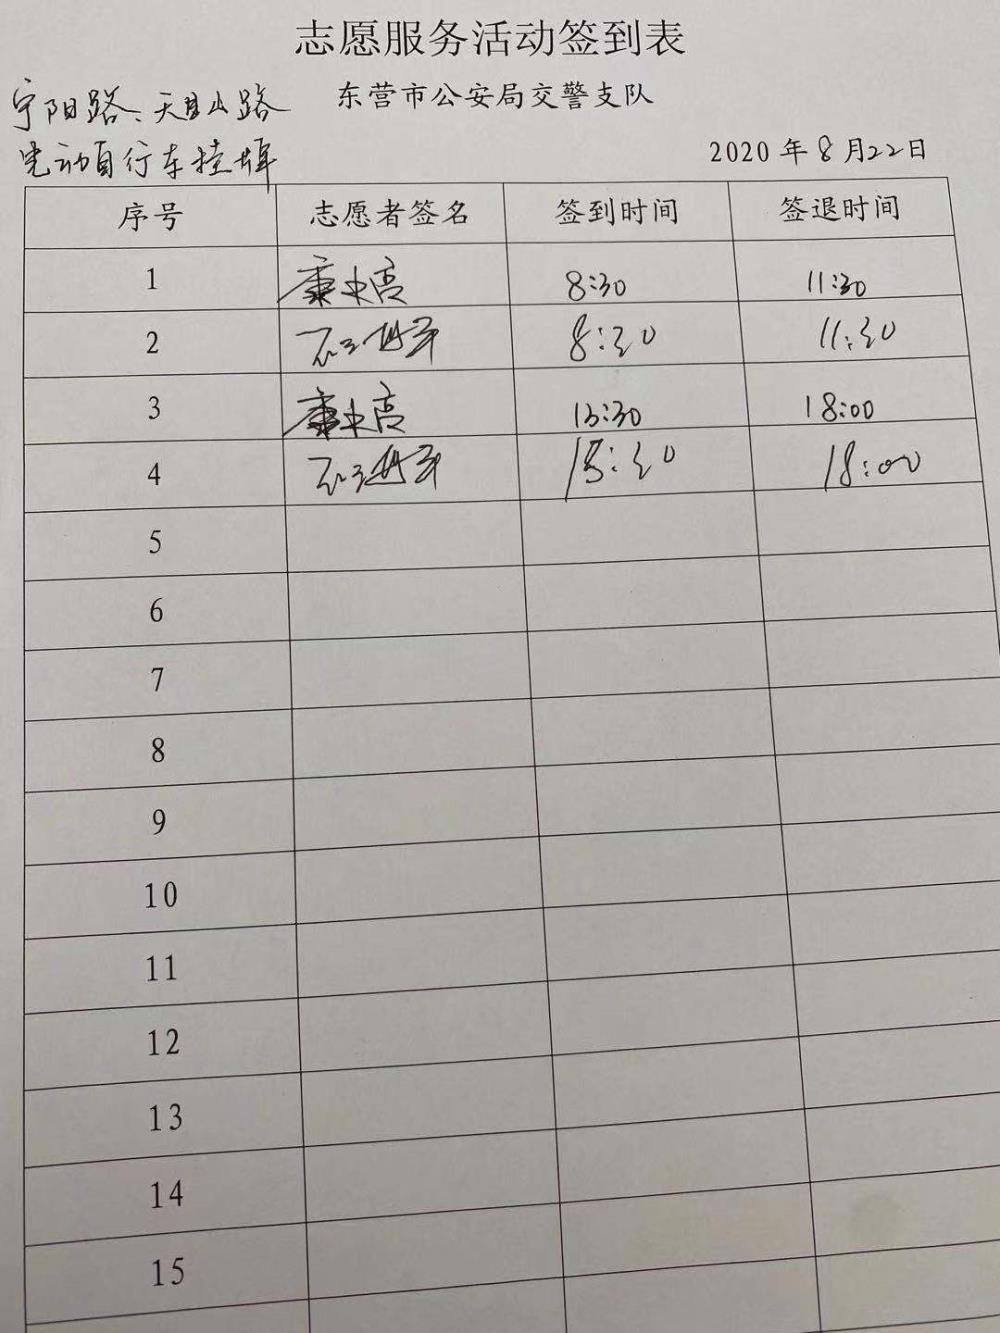 志愿服务活动签到表
宁阳路、天目山路 东营市公安局交警支队
动自行车挂牌
2020 年 8 月 22 日
序号 志愿者签名 签到时间 签退时间
1 康 高 8:30 11:30
2 8:30 11:30
3 康 高 13:30 18:00
4 13:30 18:00
5
6
7
8
9
10
11
12
13
14
15